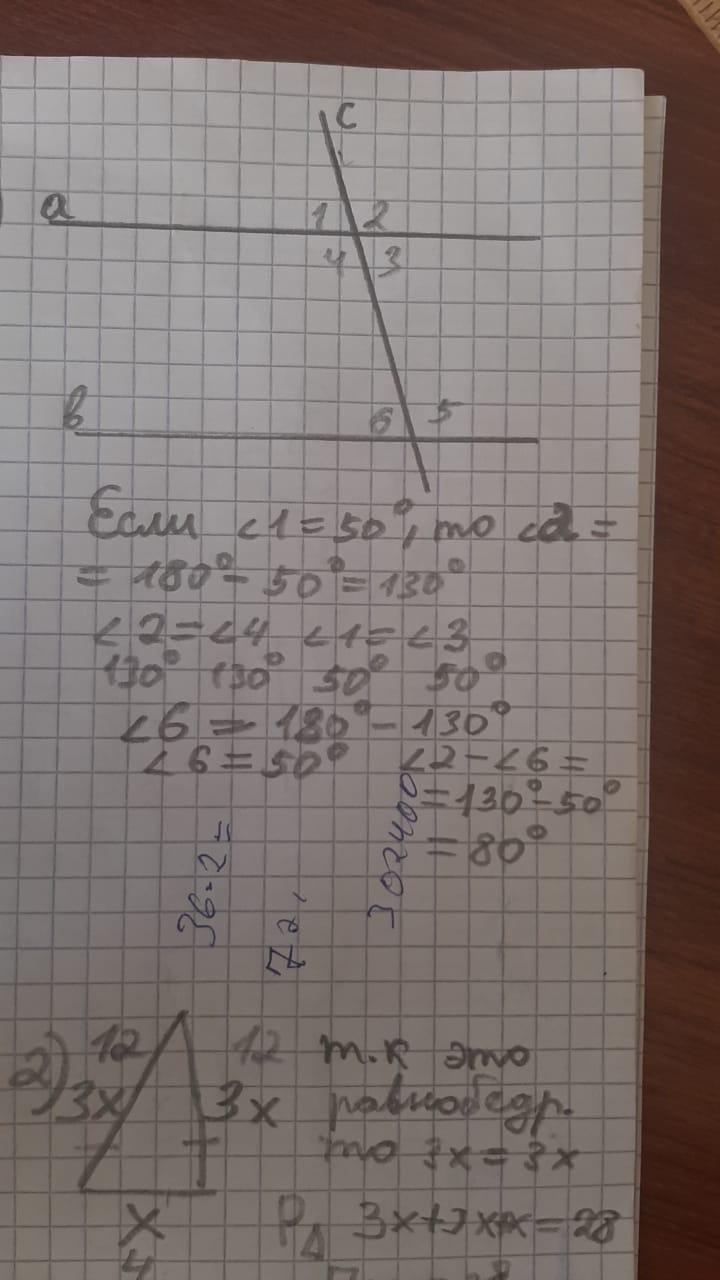 c
a
1 2
4 3
в
6 5
Если <1=50°, то <2=
= 180°- 50°=130°
<2=<4 <1=<3
130° 130° 50° 50°
<6 = 180°- 130°
<6=50° <2-<6=
=130°-50°
= 80°
36·2=
72,
302400
2) 12 12 т.к это
3x 3x равнобедр.
то 3x=3x
x PΔ 3x+3x+x=28
4